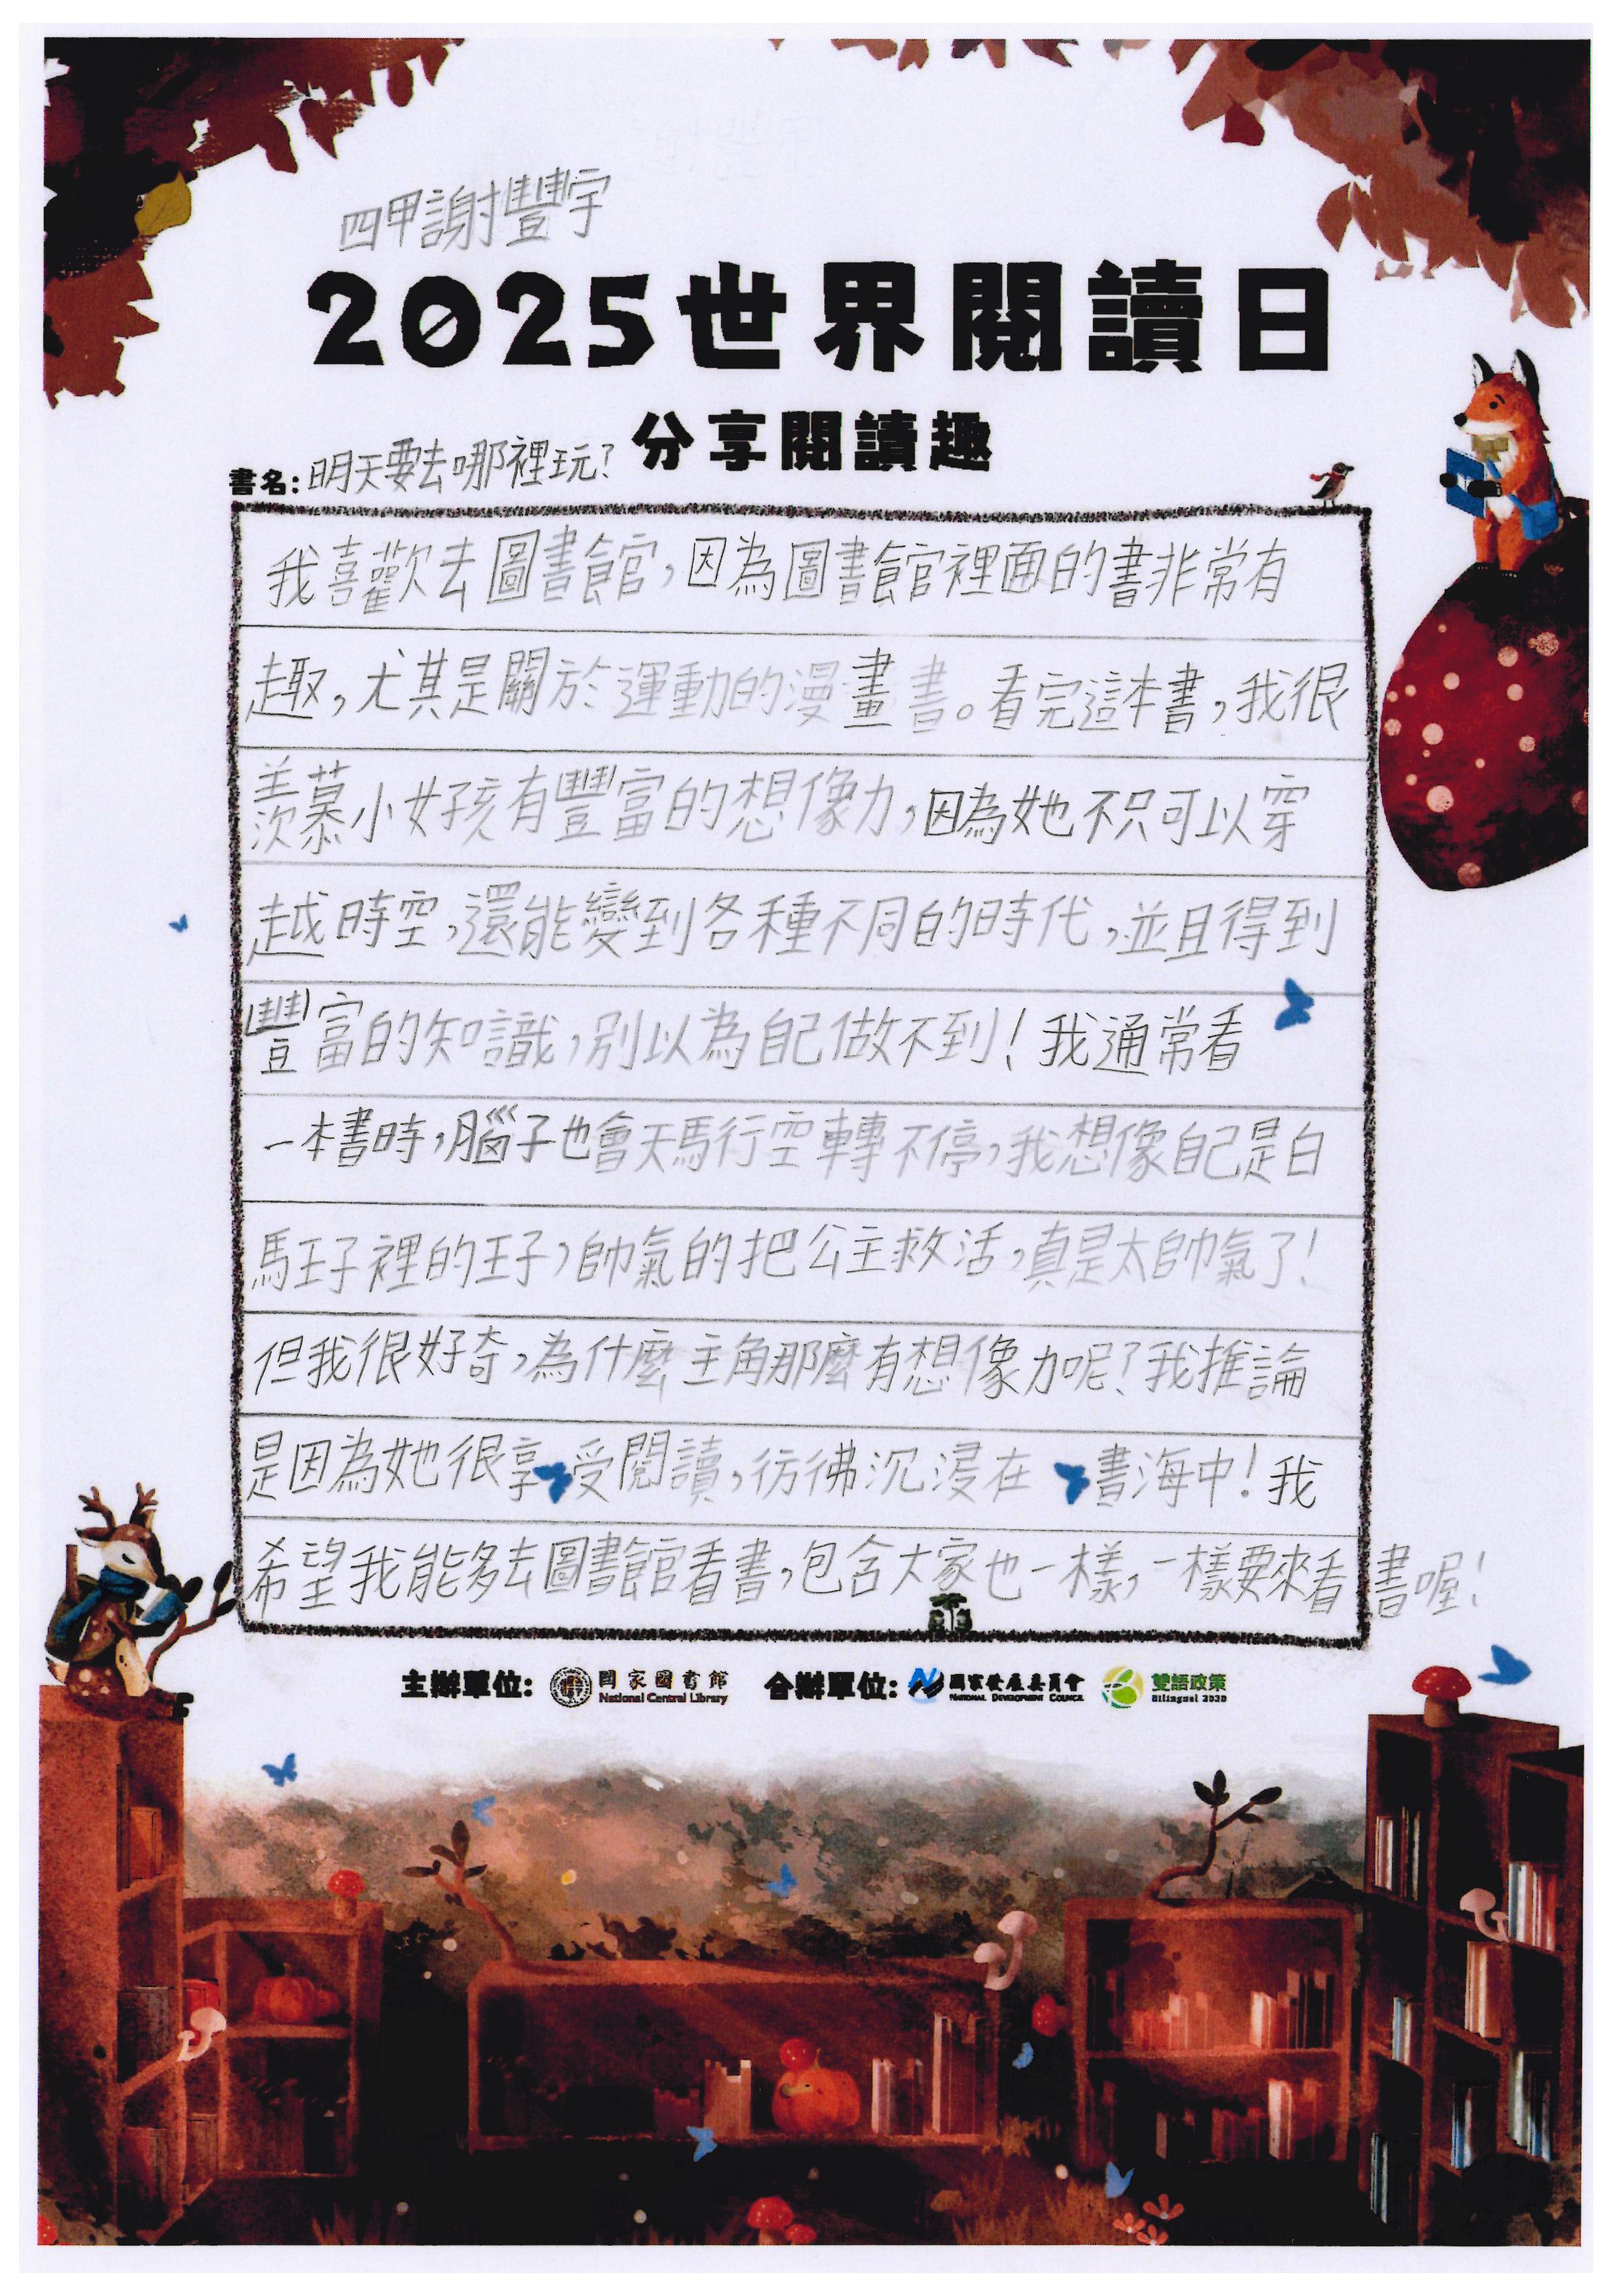 四甲謝豐宇
2025世界閱讀日
分享閱讀趣
書名：明天要去哪裡玩？
我喜歡去圖書館，因為圖書館裡面的書非常有
趣，尤其是關於運動的漫畫書。看完這本書，我很
羨慕小女孩有豐富的想像力，因為她不只可以穿
越時空，還能變到各種不同的時代，並且得到
豐富的知識，別以為自己做不到！我通常看
一本書時，腦子也會天馬行空轉不停，我想像自己是白
馬王子裡的王子，帥氣的把公主救活，真是太帥氣了！
但我很好奇，為什麼主角那麼有想像力呢？我推論
是因為她很享受閱讀，彷彿沉浸在書海中！我
希望我能多去圖書館看書，包含大家也一樣，一樣要來看書喔！
主辦單位： 國家圖書館 National Central Library 合辦單位： 國家發展委員會 National Development Council 雙語政策 Bilingual 2030